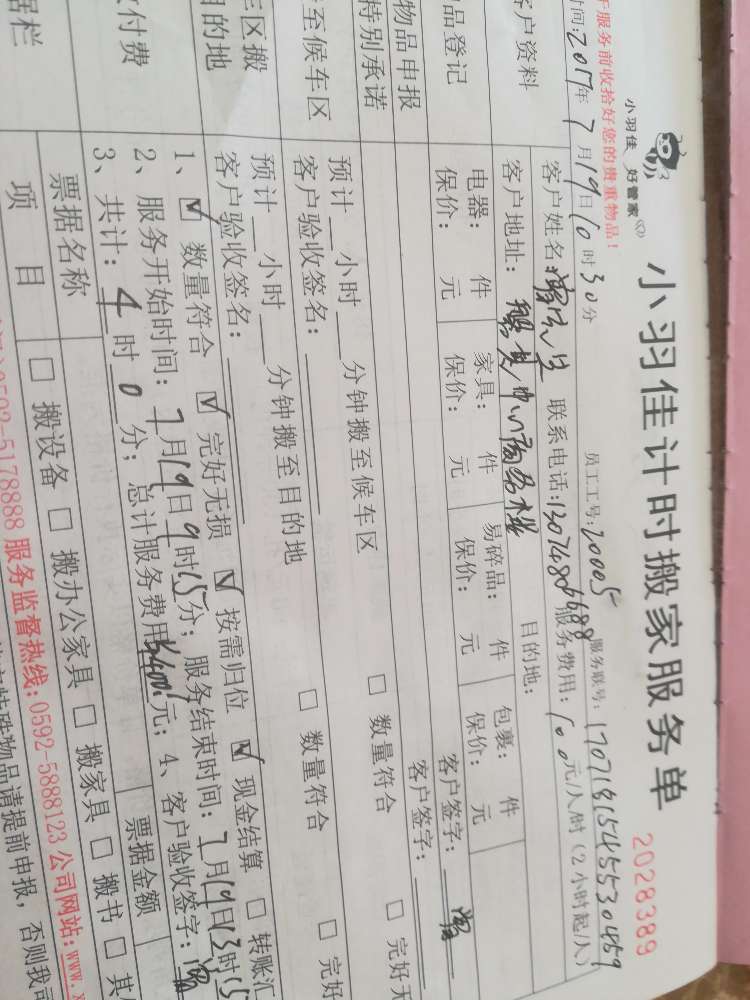 小羽佳 好管家
小羽佳计时搬家服务单
2028389
于服务前收拾好您的贵重物品!
员工工号:20005 服务联号:
时间:2017年7月19日10时30分
客户资料
客户姓名: 联系电话: 服务费用:100元/人/时(2小时起/人)
客户地址: 目的地:
品登记
电器: 件 家具: 件 易碎品: 件 包裹: 件
保价: 元 保价: 元 保价: 元 保价: 元
物品申报
客户签字:
特别承诺
客户签字:
至候车区
预计 小时 分钟搬至候车区 □ 数量符合 □ 完好无
客户验收签名:
区搬
目的地
预计 小时 分钟搬至目的地 □ 数量符合 □ 完好
客户验收签名:
付费
1、☑ 数量符合 ☑ 完好无损 ☑ 按需归位 ☑ 现金结算 □ 转账汇
2、服务开始时间:7月19日9时15分;服务结束时间:7月19日13时15
3、共计:4时0分;总计服务费用 元;4、客户验收签字:
据栏
票据名称 票据金额
项 目 □ 搬设备 □ 搬办公家具 □ 搬家具 □ 搬书 □ 其
0592-5178888 服务监督热线:0592-5888123 公司网站:www.x
特殊物品请提前申报,否则我司